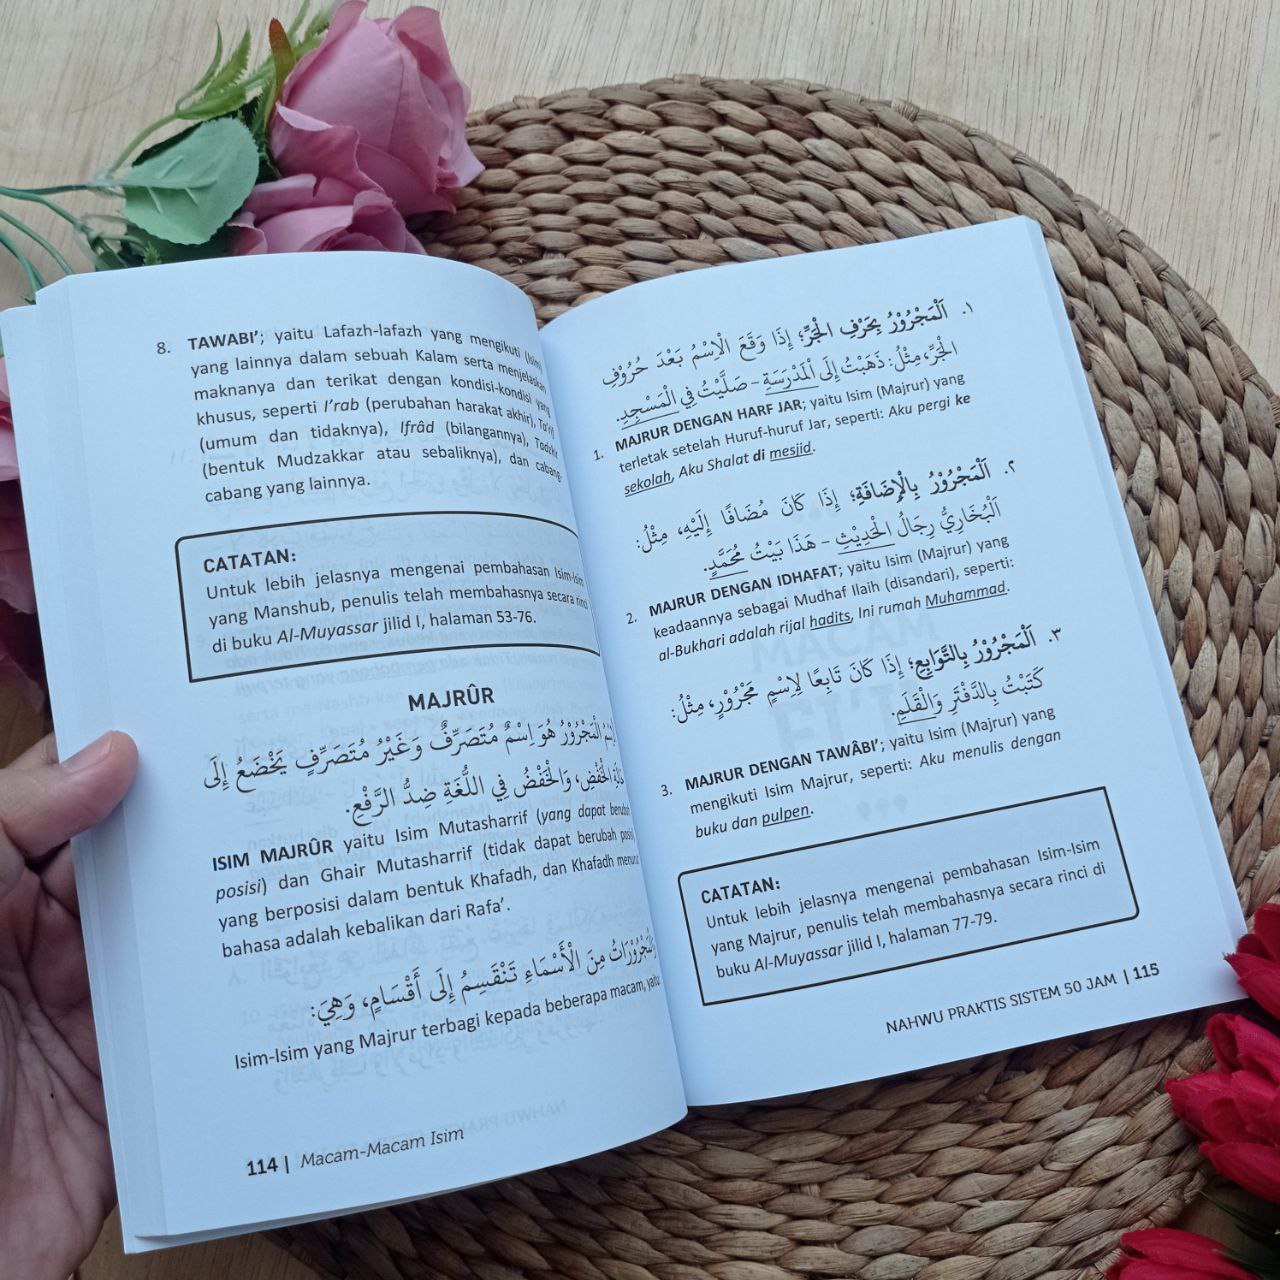 8. TAWABI’; yaitu Lafazh-lafazh yang mengikuti (Isim)
yang lainnya dalam sebuah Kalam serta menjelaskan
maknanya dan terikat dengan kondisi-kondisi yang
khusus, seperti I’rab (perubahan harakat akhir), Ta’rif
(umum dan tidaknya), Ifrâd (bilangannya), Tadzkir
(bentuk Mudzakkar atau sebaliknya), dan cabang-
cabang yang lainnya.
CATATAN:
Untuk lebih jelasnya mengenai pembahasan Isim-Isim
yang Manshub, penulis telah membahasnya secara rinci
di buku Al-Muyassar jilid I, halaman 53-76.
MAJRÛR
اِسْمُ الْمَجْرُوْرُ هُوَ اِسْمٌ مُتَصَرِّفٌ وَغَيْرُ مُتَصَرِّفٍ يَخْضَعُ إِلَى
الْخَفْضِ، وَالْخَفْضُ فِي اللُّغَةِ ضِدُّ الرَّفْعِ.
ISIM MAJRÛR yaitu Isim Mutasharrif (yang dapat berubah
posisi) dan Ghair Mutasharrif (tidak dapat berubah posisi)
yang berposisi dalam bentuk Khafadh, dan Khafadh menurut
bahasa adalah kebalikan dari Rafa’.
وَالْمَجْرُوْرَاتُ مِنَ الْأَسْمَاءِ تَنْقَسِمُ إِلَى أَقْسَامٍ، وَهِيَ:
Isim-Isim yang Majrur terbagi kepada beberapa macam, yaitu
114 | Macam-Macam Isim
١. اَلْمَجْرُوْرُ بِحَرْفِ الْجَرِّ؛ إِذَا وَقَعَ الْاِسْمُ بَعْدَ حُرُوْفِ
الْجَرِّ، مِثْلُ: ذَهَبْتُ إِلَى الْمَدْرَسَةِ – صَلَّيْتُ فِي الْمَسْجِدِ.
1. MAJRUR DENGAN HARF JAR; yaitu Isim (Majrur) yang
terletak setelah Huruf-huruf Jar, seperti: Aku pergi ke
sekolah, Aku Shalat di mesjid.
٢. اَلْمَجْرُوْرُ بِالْإِضَافَةِ؛ إِذَا كَانَ مُضَافًا إِلَيْهِ، مِثْلُ:
اَلْبُخَارِيُّ رِجَالُ الْحَدِيْثِ – هَذَا بَيْتُ مُحَمَّدٍ.
2. MAJRUR DENGAN IDHAFAT; yaitu Isim (Majrur) yang
keadaannya sebagai Mudhaf Ilaih (disandari), seperti:
al-Bukhari adalah rijal hadits, Ini rumah Muhammad.
٣. اَلْمَجْرُوْرُ بِالتَّوَابِعِ؛ إِذَا كَانَ تَابِعًا لِاِسْمٍ مَجْرُوْرٍ، مِثْلُ:
كَتَبْتُ بِالدَّفْتَرِ وَالْقَلَمِ.
3. MAJRUR DENGAN TAWÂBI’; yaitu Isim (Majrur) yang
mengikuti Isim Majrur, seperti: Aku menulis dengan
buku dan pulpen.
CATATAN:
Untuk lebih jelasnya mengenai pembahasan Isim-Isim
yang Majrur, penulis telah membahasnya secara rinci di
buku Al-Muyassar jilid I, halaman 77-79.
NAHWU PRAKTIS SISTEM 50 JAM | 115